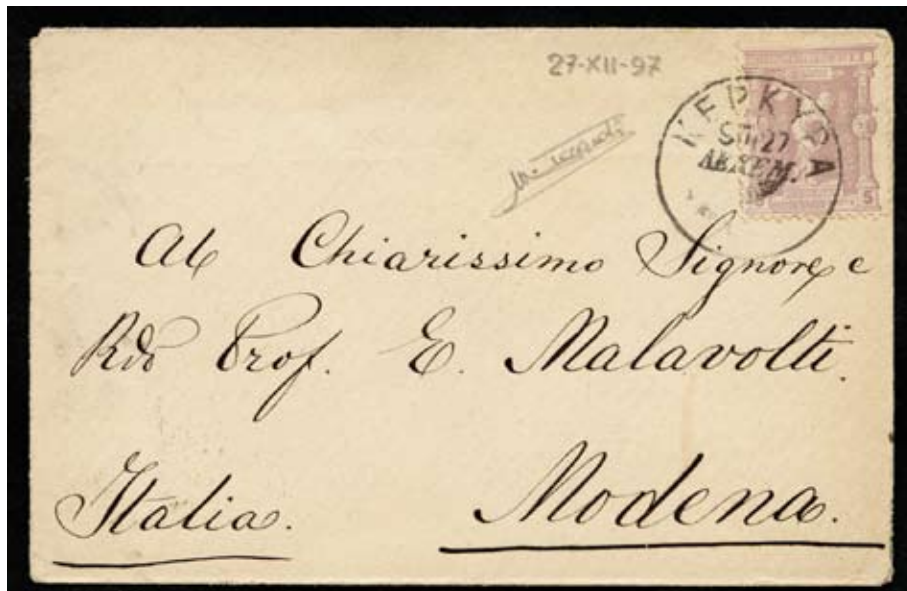 27-XII-97
ΚΕΡΚΥΡΑ
27
ΔΕΚΕΜ.
5
Al Chiarissimo Signore e
Rdo Prof. E. Malavolti.
Modena.
Italia.